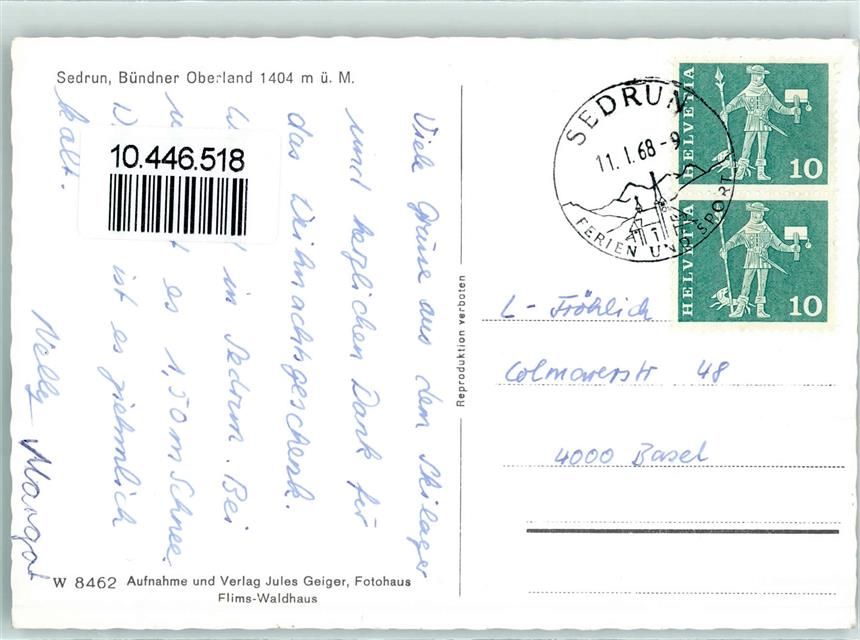 Sedrun, Bündner Oberland 1404 m ü. M.
Viele Grüsse aus dem Skilager
und herzlichen Dank für
das Weihnachtsgeschenk.
in Sedrun. Bei
es 1,50 m Schnee.
ist es ziehmlich
kalt.
Nelly Margot
10.446.518
W 8462 Aufnahme und Verlag Jules Geiger, Fotohaus
Flims-Waldhaus
Reproduktion verboten
SEDRUN
11.I.68-9
FERIEN UND SPORT
HELVETIA
10
HELVETIA
10
L- Fröhlich
Colmarerstr 48
4000 Basel